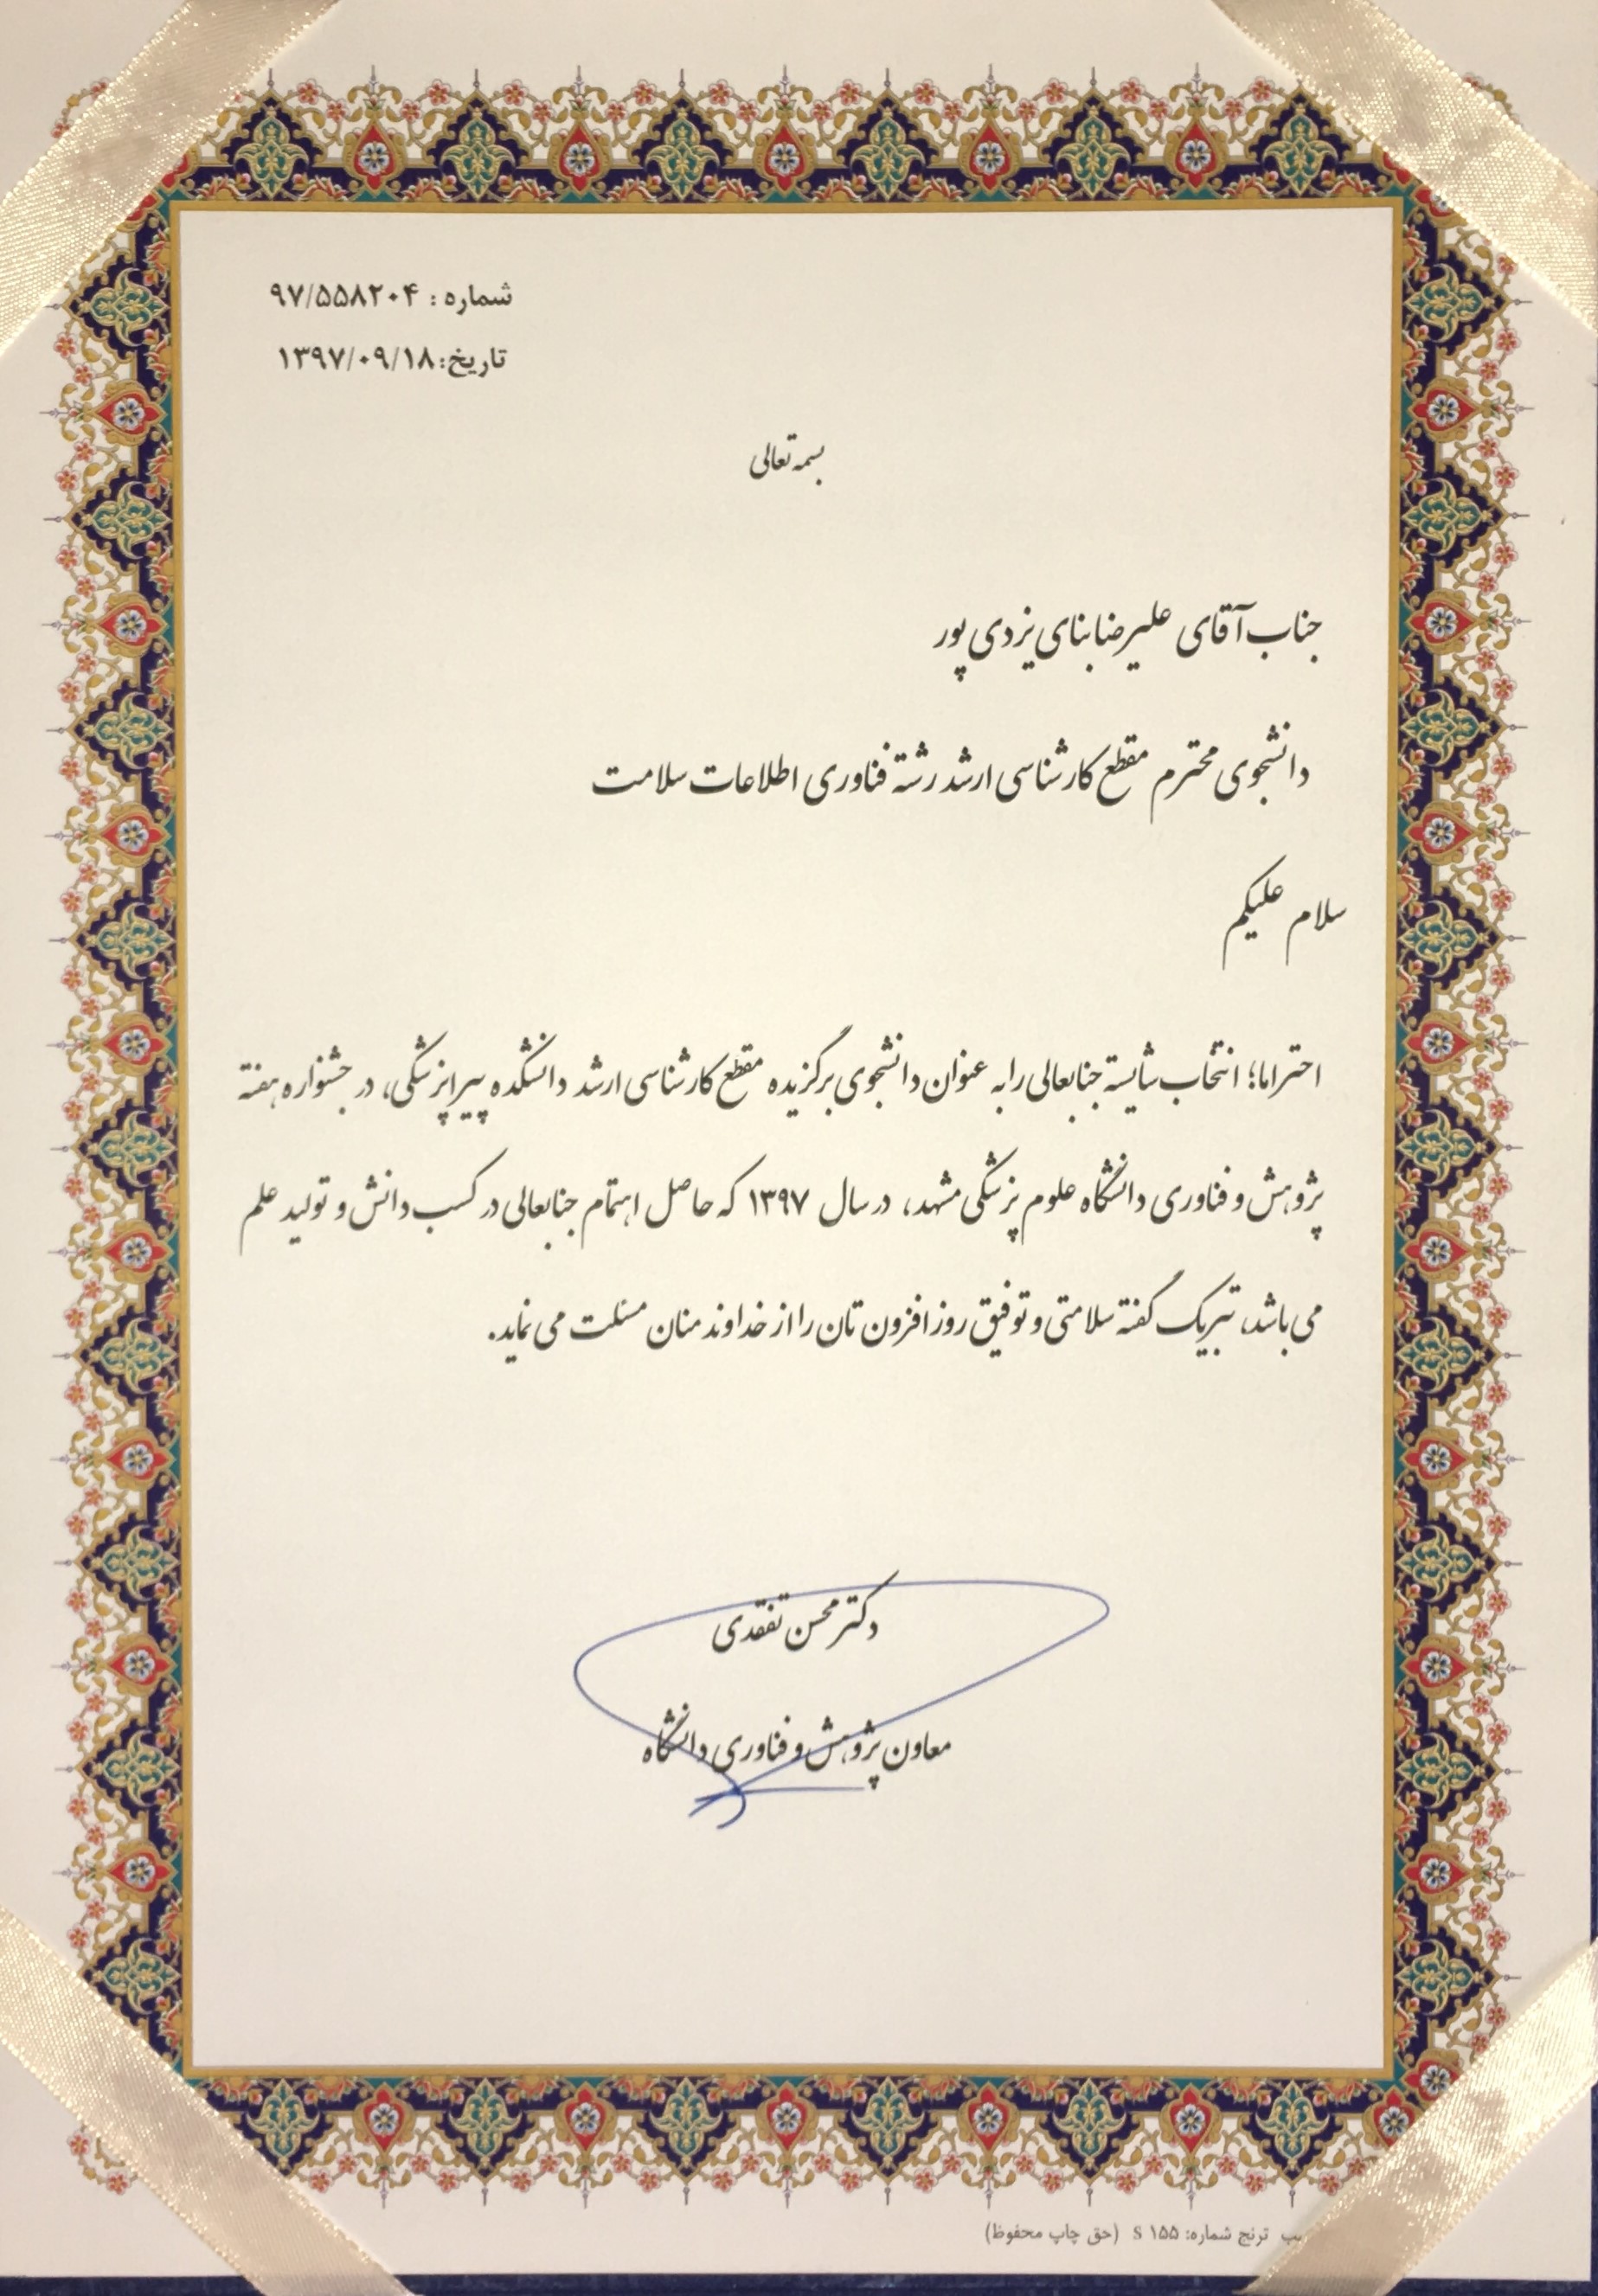 شماره : ۹۷/۵۵۸۲۰۴
تاریخ: ۱۳۹۷/۰۹/۱۸
بسمه تعالی
جناب آقای علیرضا بنای یزدی پور
دانشجوی محترم مقطع کارشناسی ارشد رشته فناوری اطلاعات سلامت
سلام علیکم
احتراما؛ انتخاب شایسته جنابعالی را به عنوان دانشجوی برگزیده مقطع کارشناسی ارشد دانشکده پیراپزشکی، در جشنواره هفته
پژوهش و فناوری دانشگاه علوم پزشکی مشهد، در سال ۱۳۹۷ که حاصل اهتمام جنابعالی در کسب دانش و تولید علم
می باشد، تبریک گفته سلامتی و توفیق روز افزون تان را از خداوند منان مسئلت می نماید.
دکتر محسن تفقدی
معاون پژوهش و فناوری دانشگاه
ترنج شماره: S ۱۵۵ (حق چاپ محفوظ)